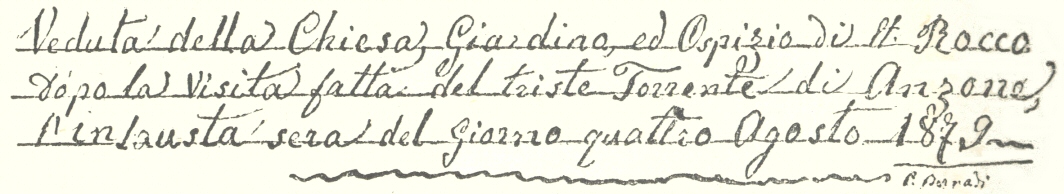 Veduta della Chiesa, Giardino, ed Ospizio di St. Rocco
dopo la Visita fatta del triste Torrente di Anzone,
l'infausta sera del Giorno quattro Agosto 1879